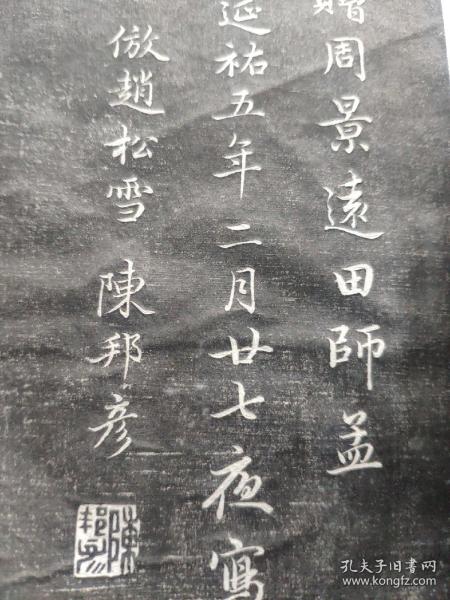 贈周景遠田師孟
延祐五年二月廿七夜寫
倣趙松雪 陳邦彥
陳邦彥
孔夫子旧书网
www.kongfz.com